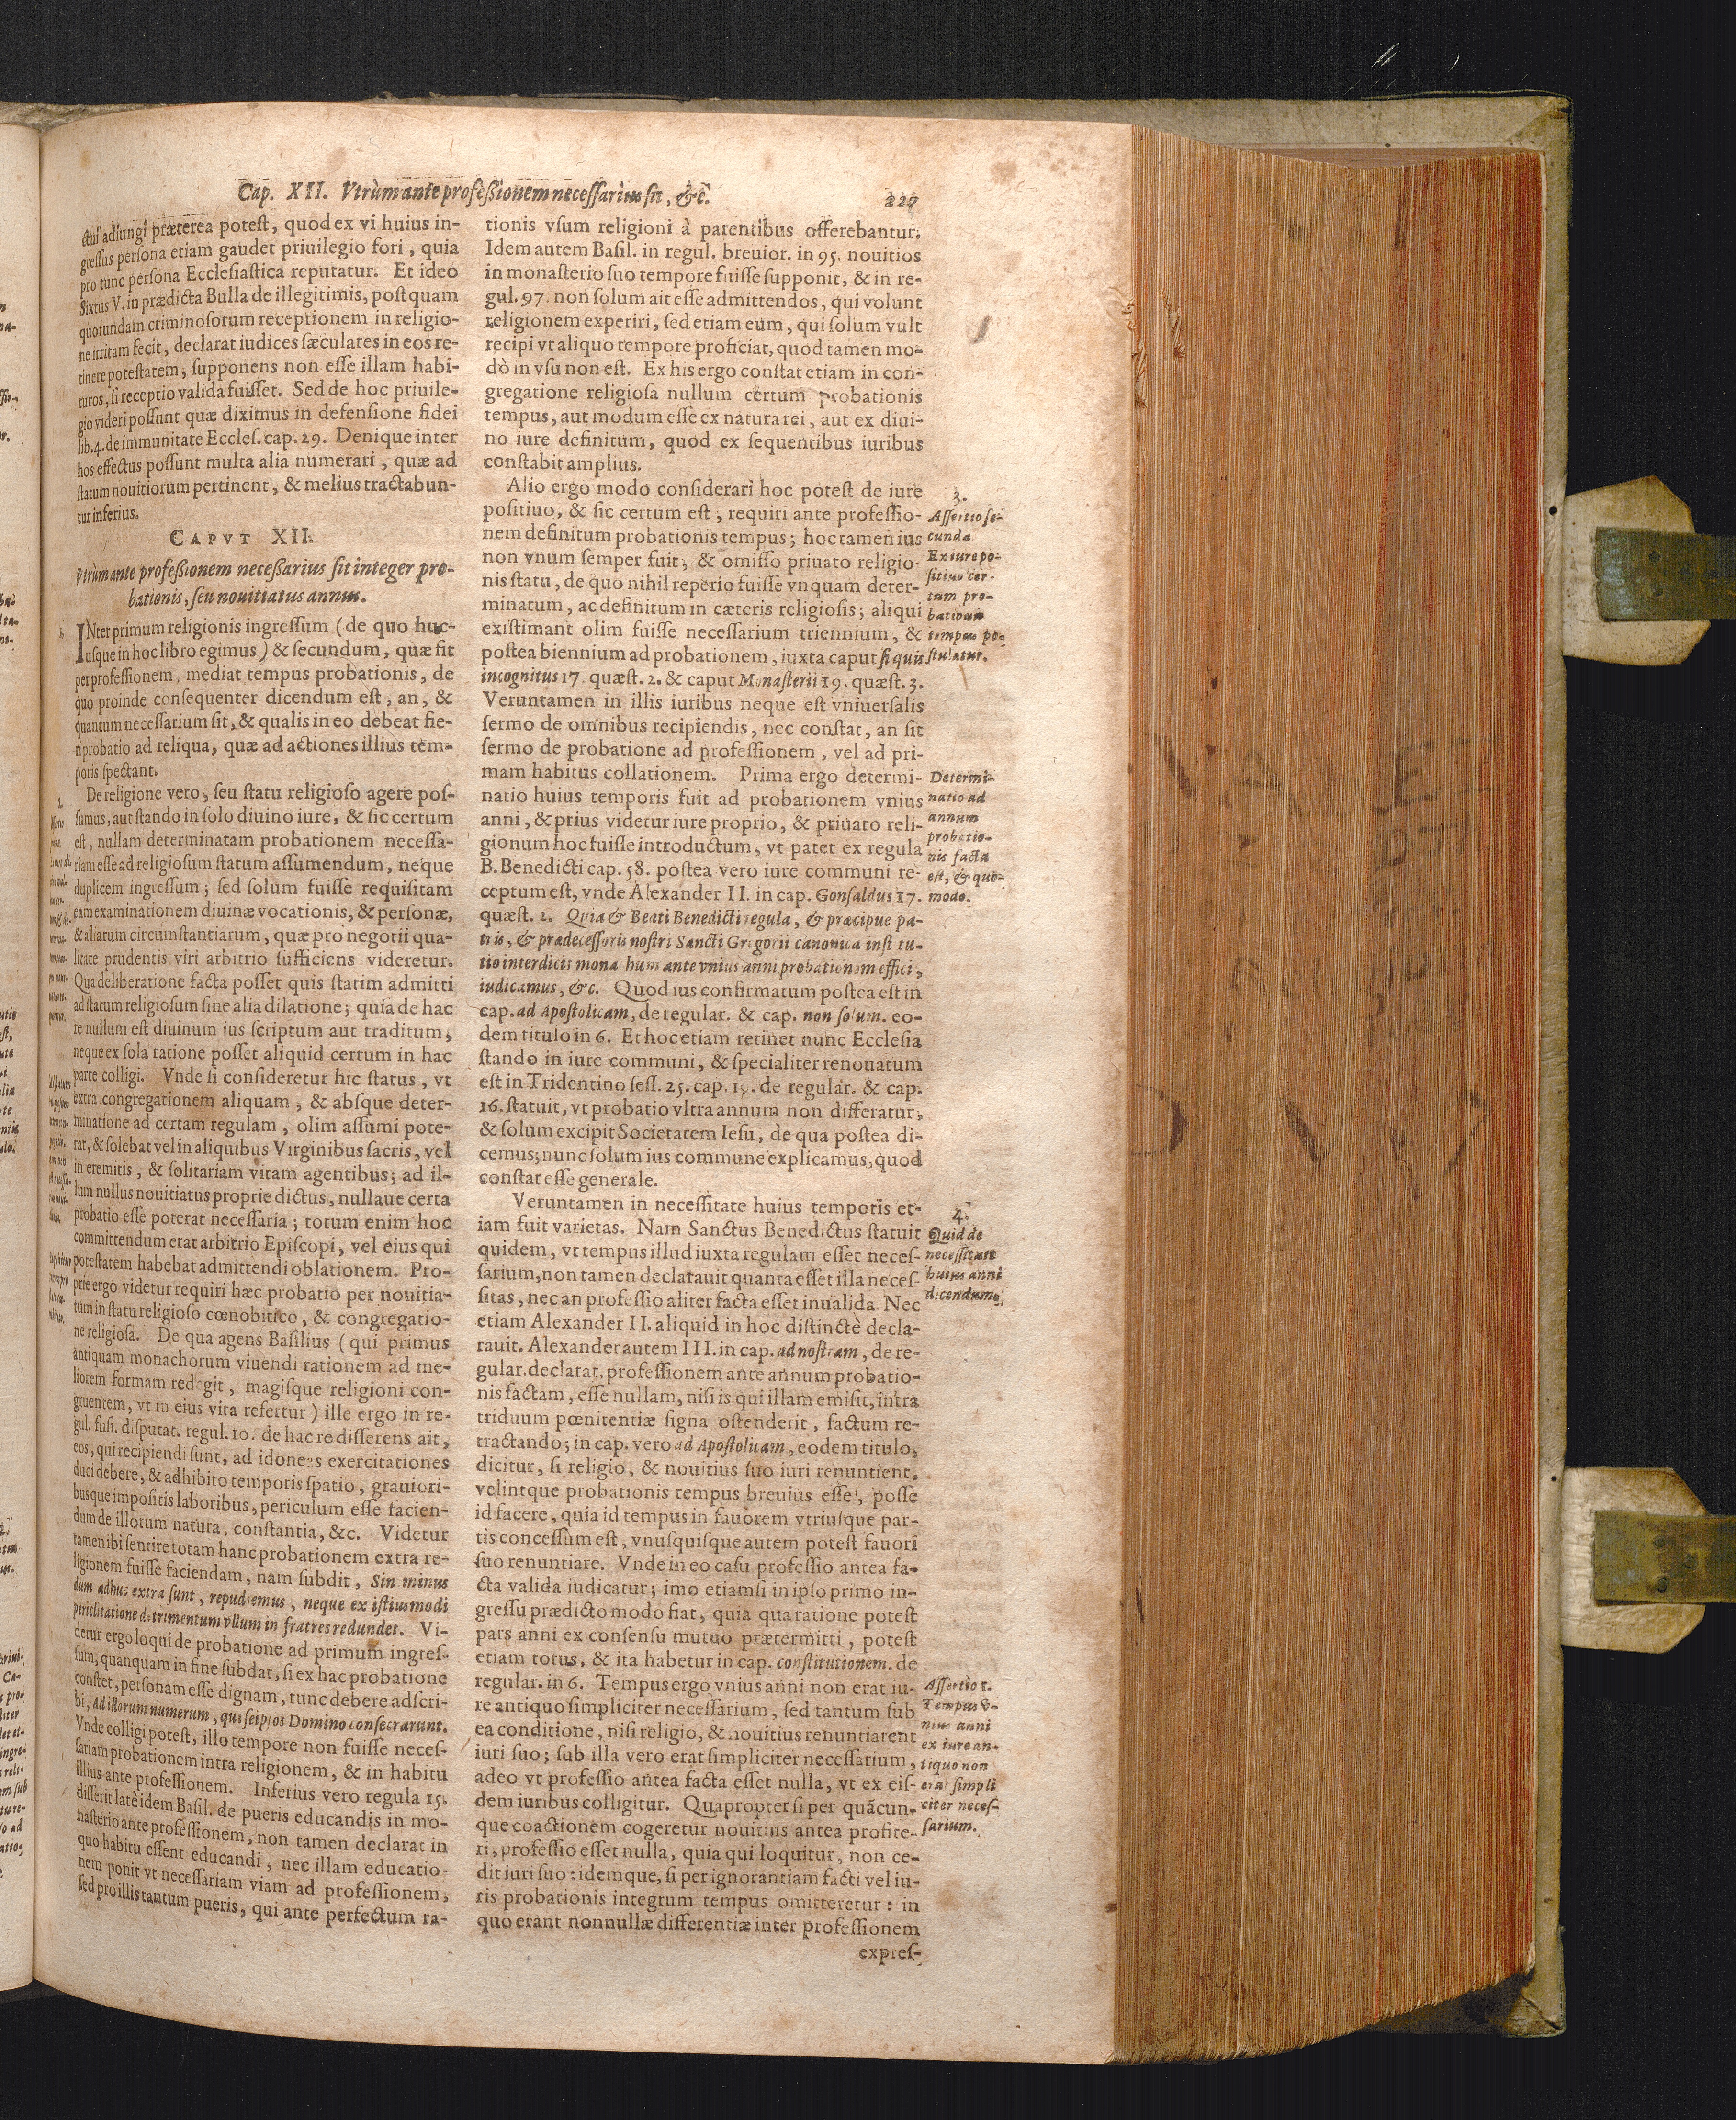 Cap. XII. Vtrùm ante professionem necessarius sit, &c. 227
ctui adiungi præterea potest, quod ex vi huius in-
gressus persona etiam gaudet priuilegio fori, quia
pro tunc persona Ecclesiastica reputatur. Et ideo
Sixtus V. in prædicta Bulla de illegitimis, postquam
quorundam criminosorum receptionem in religio-
ne irritam fecit, declarat iudices sæculares in eos re-
tinere potestatem, supponens non esse illam habi-
turos, si receptio valida fuisset. Sed de hoc priuile-
gio videri possunt quæ diximus in defensione fidei
lib. 4. de immunitate Eccles. cap. 29. Denique inter
hos effectus possunt multa alia numerari, quæ ad
statum nouitiorum pertinent, & melius tractabun-
tur inferius.
CAPVT XII.
Vtrùm ante professionem necessarius sit integer pro-
bationis, seu nouitiatus annus.
INter primum religionis ingressum (de quo huc-
usque in hoc libro egimus) & secundum, quæ fit
per professionem, mediat tempus probationis, de
quo proinde consequenter dicendum est, an, &
quantum necessarium sit, & qualis in eo debeat fie-
ri probatio ad reliqua, quæ ad actiones illius tem-
poris spectant.
De religione vero, seu statu religioso agere pos-
sumus, aut stando in solo diuino iure, & sic certum
est, nullam determinatam probationem necessa-
riam esse ad religiosum statum assumendum, neque
duplicem ingressum; sed solum fuisse requisitam
eam examinationem diuinæ vocationis, & personæ,
& aliarum circumstantiarum, quæ pro negotii qua-
litate prudentis viri arbitrio sufficiens videretur.
Qua deliberatione facta posset quis statim admitti
ad statum religiosum sine alia dilatione; quia de hac
re nullum est diuinum ius scriptum aut traditum,
neque ex sola ratione posset aliquid certum in hac
parte colligi. Vnde si consideretur hic status, vt
extra congregationem aliquam, & absque deter-
minatione ad certam regulam, olim assumi pote-
rat, & solebat vel in aliquibus Virginibus sacris, vel
in eremitis, & solitariam vitam agentibus; ad il-
lum nullus nouitiatus proprie dictus, nullaue certa
probatio esse poterat necessaria; totum enim hoc
committendum erat arbitrio Episcopi, vel eius qui
potestatem habebat admittendi oblationem. Pro-
prie ergo videtur requiri hæc probatio per nouitia-
tum in statu religioso cœnobitico, & congregatio-
ne religiosa. De qua agens Basilius (qui primus
antiquam monachorum viuendi rationem ad me-
liorem formam redegit, magisque religioni con-
gruentem, vt in eius vita refertur) ille ergo in re-
gul. fusi. disputat. regul. 10. de hac re disserens ait,
eos, qui recipiendi sunt, ad idoneas exercitationes
duci debere, & adhibito temporis spatio, grauiori-
busque impositis laboribus, periculum esse facien-
dum de illorum natura, constantia, &c. Videtur
tamen ibi sentire totam hanc probationem extra re-
ligionem fuisse faciendam, nam subdit, Sin minus
dum adhuc extra sunt, repudiemus, neque ex istiusmodi
periclitatione detrimentum vllum in fratres redundet. Vi-
detur ergo loqui de probatione ad primum ingres-
sum, quanquam in fine subdat, si ex hac probatione
constet, personam esse dignam, tunc debere adscri-
bi, ad illorum numerum, qui seipsos Domino consecrarunt.
Vnde colligi potest, illo tempore non fuisse neces-
sariam probationem intra religionem, & in habitu
illius ante professionem. Inferius vero regula 15.
disserit latè idem Basil. de pueris educandis in mo-
nasterio ante professionem, non tamen declarat in
quo habitu essent educandi, nec illam educatio-
nem ponit vt necessariam viam ad professionem,
sed pro illis tantum pueris, qui ante perfectum ra-
tionis vsum religioni à parentibus offerebantur.
Idem autem Basil. in regul. breuior. in 95. nouitios
in monasterio suo tempore fuisse supponit, & in re-
gul. 97. non solum ait esse admittendos, qui volunt
religionem experiri, sed etiam eum, qui solum vult
recipi vt aliquo tempore proficiat, quod tamen mo-
dò in vsu non est. Ex his ergo constat etiam in con-
gregatione religiosa nullum certum probationis
tempus, aut modum esse ex natura rei, aut ex diui-
no iure definitum, quod ex sequentibus iuribus
constabit amplius.
Alio ergo modo considerari hoc potest de iure
positiuo, & sic certum est, requiri ante professio-
nem definitum probationis tempus; hoc tamen ius
non vnum semper fuit, & omisso priuato religio-
nis statu, de quo nihil reperio fuisse vnquam deter-
minatum, ac definitum in cæteris religiosis; aliqui
existimant olim fuisse necessarium triennium, &
postea biennium ad probationem, iuxta caput si quis
incognitus 17. quæst. 2. & caput Monasterii 19. quæst. 3.
Veruntamen in illis iuribus neque est vniuersalis
sermo de omnibus recipiendis, nec constat, an sit
sermo de probatione ad professionem, vel ad pri-
mam habitus collationem. Prima ergo determi-
natio huius temporis fuit ad probationem vnius
anni, & prius videtur iure proprio, & priuato reli-
gionum hoc fuisse introductum, vt patet ex regula
B. Benedicti cap. 58. postea vero iure communi re-
ceptum est, vnde Alexander II. in cap. Gonsaldus 17.
quæst. 2. Quia & Beati Benedicti regula, & præcipue pa-
tris, & prædecessoris nostri Sancti Gregorii canonica institu-
tio interdicit monachum ante vnius anni probationem effici,
iudicamus, &c. Quod ius confirmatum postea est in
cap. ad Apostolicam, de regular. & cap. non solum. eo-
dem titulo in 6. Et hoc etiam retinet nunc Ecclesia
stando in iure communi, & specialiter renouatum
est in Tridentino sess. 25. cap. 15. de regular. & cap.
16. statuit, vt probatio vltra annum non differatur,
& solum excipit Societatem Iesu, de qua postea di-
cemus; nunc solum ius commune explicamus, quod
constat esse generale.
Veruntamen in necessitate huius temporis et-
iam fuit varietas. Nam Sanctus Benedictus statuit
quidem, vt tempus illud iuxta regulam esset neces-
sarium, non tamen declarauit quanta esset illa neces-
sitas, nec an professio aliter facta esset inualida. Nec
etiam Alexander II. aliquid in hoc distinctè decla-
rauit. Alexander autem III. in cap. ad nostram, de re-
gular. declarat, professionem ante annum probatio-
nis factam, esse nullam, nisi is qui illam emisit, intra
triduum pœnitentiæ signa ostenderit, factum re-
tractando; in cap. vero ad Apostolicam, eodem titulo,
dicitur, si religio, & nouitius suo iuri renuntient,
velintque probationis tempus breuius esse, posse
id facere, quia id tempus in fauorem vtriusque par-
tis concessum est, vnusquisque autem potest fauori
suo renuntiare. Vnde in eo casu professio antea fa-
cta valida iudicatur; imo etiamsi in ipso primo in-
gressu prædicto modo fiat, quia qua ratione potest
pars anni ex consensu mutuo prætermitti, potest
etiam totus, & ita habetur in cap. constitutionem. de
regular. in 6. Tempus ergo vnius anni non erat iu-
re antiquo simpliciter necessarium, sed tantum sub
ea conditione, nisi religio, & nouitius renuntiarent
iuri suo; sub illa vero erat simpliciter necessarium,
adeo vt professio antea facta esset nulla, vt ex eis-
dem iuribus colligitur. Quapropter si per quãcun-
que coactionem cogeretur nouitius antea profite-
ri, professio esset nulla, quia qui loquitur, non ce-
dit iuri suo: idemque, si per ignorantiam facti vel iu-
ris probationis integrum tempus omitteretur: in
quo erant nonnullæ differentiæ inter professionem
expres-
3.
Assertio se-
cunda
Ex iure po-
sitiuo cer-
tum pro-
bationis
tempus po-
stulatur.
Determi-
natio ad
annum
probatio-
nis facta
est, & quo-
modo.
4.
Quid de
necessitate
huius anni
dicendum.
Assertio 1.
Tempus v-
nius anni
ex iure an-
tiquo non
erat simpli
citer neces-
sarium.